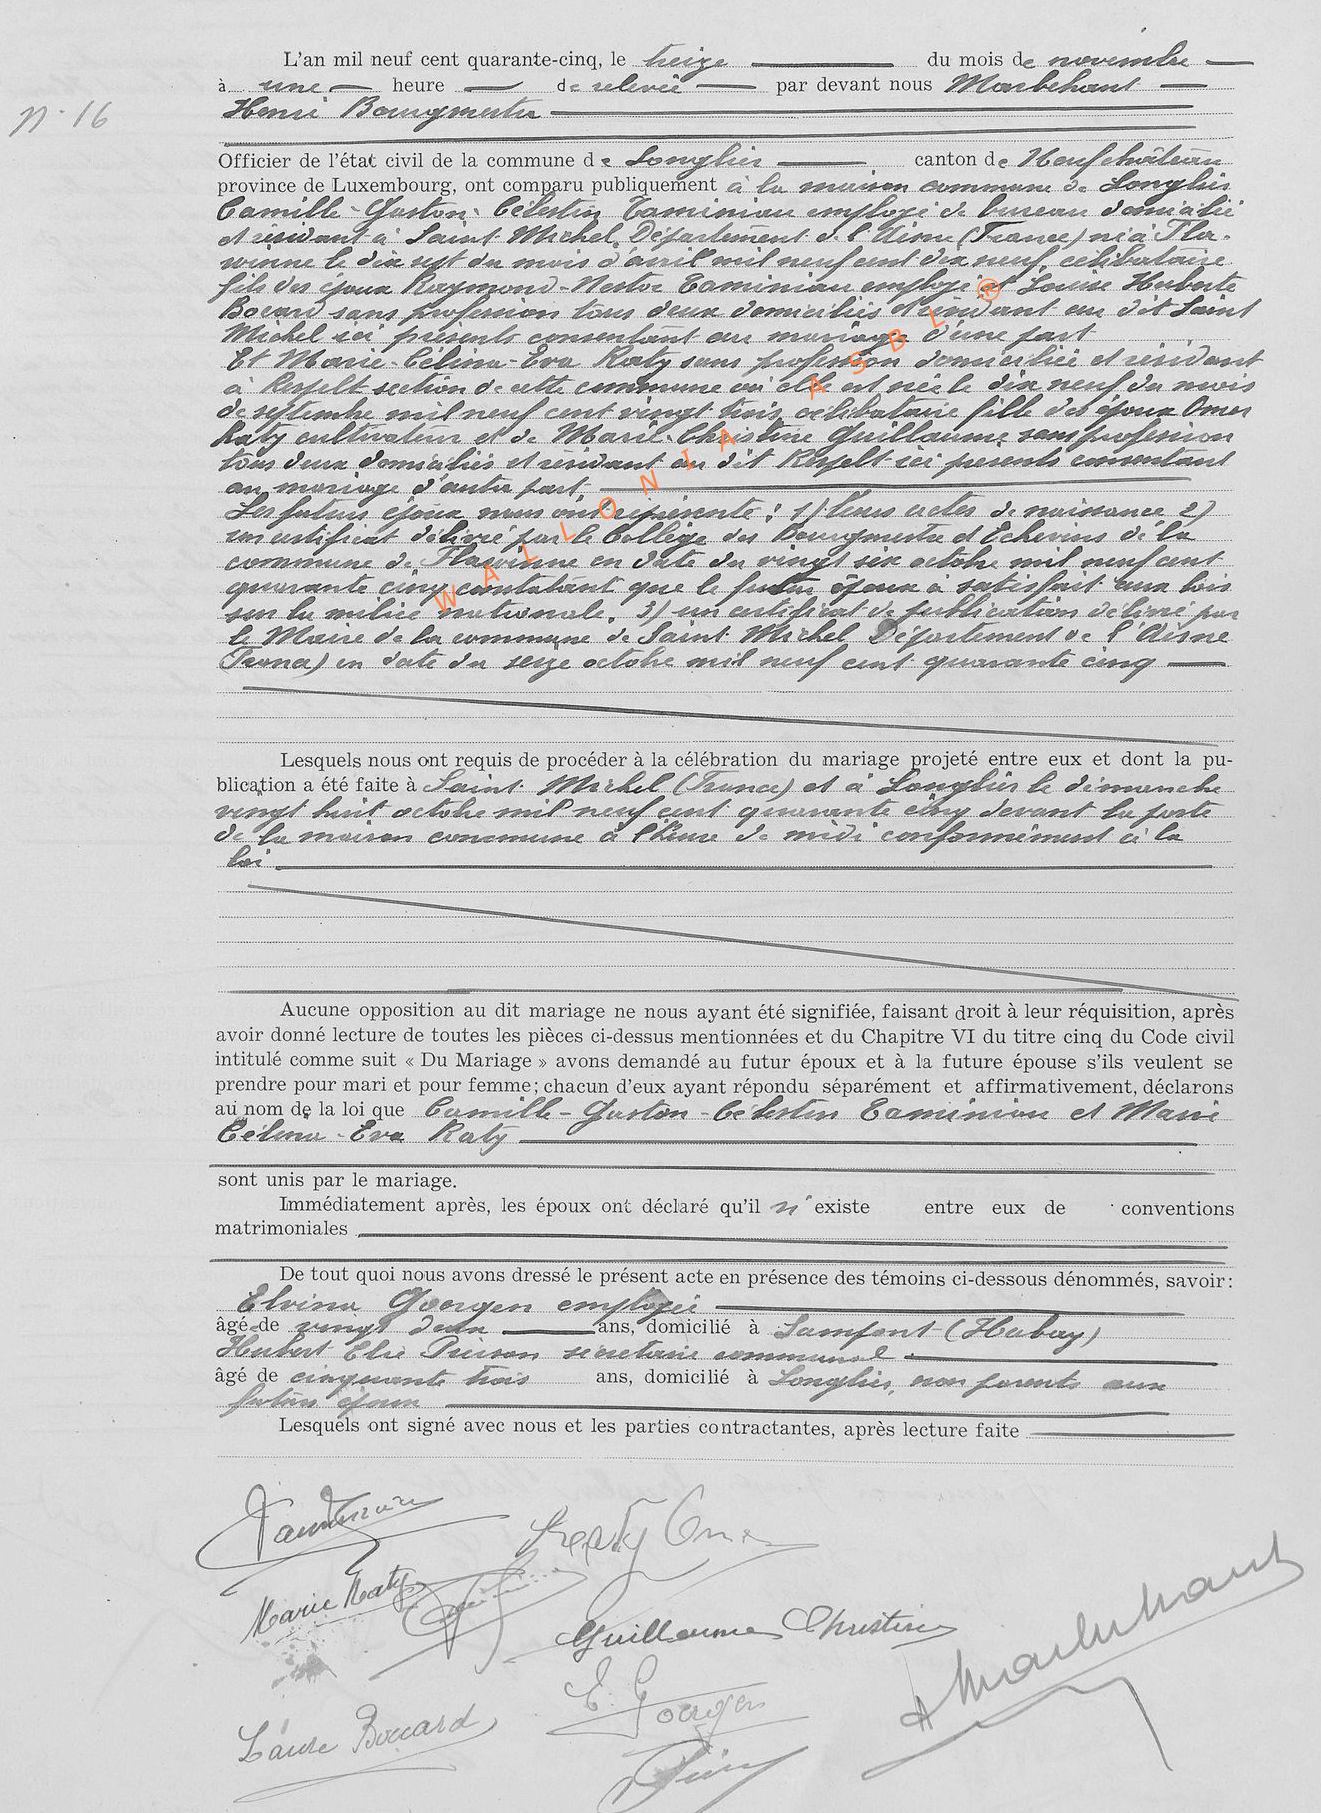 L'an mil neuf cent quarante-cinq, le treize du mois de novembre
à une heure de relevée par devant nous Marbehant
n. 16
Henri Bourgmestre
Officier de l'état civil de la commune de Longlier canton de Neufchâteau
province de Luxembourg, ont comparu publiquement à la maison commune de Longlier
Camille-Gaston-Célestin Taminiau employé de bureau domicilié
et résidant à Saint-Michel, Département de l'Aisne (France) né à Fla-
winne le dix sept du mois d'avril mil neuf cent dix neuf célibataire
fils des époux Raymond-Nestor Taminiau employé et Louise Huberte
Bocard sans profession tous deux domiciliés et résidant au dit Saint
Michel ici présents consentant au mariage d'une part
Et Marie-Célina-Eva Katy sans profession domiciliée et résidant
à Respelt section de cette commune où elle est née le dix neuf du mois
de septembre mil neuf cent vingt trois célibataire fille des époux Omer
Katy cultivateur et de Marie-Christine Guillaume sans profession
tous deux domiciliés et résidant au dit Respelt ici présents consentant
au mariage d'autre part
Les futurs époux nous ont représenté : 1) leurs actes de naissance 2)
un certificat délivré par le Collège des Bourgmestre et Echevins de la
commune de Flawinne en date du vingt six octobre mil neuf cent
quarante cinq constatant que le futur époux a satisfait aux lois
sur la milice nationale. 3) un certificat de publication délivré par
le Maire de la commune de Saint-Michel Département de l'Aisne
(France) en date du seize octobre mil neuf cent quarante cinq
WALLONIA ASBL ®
Lesquels nous ont requis de procéder à la célébration du mariage projeté entre eux et dont la pu-
blication a été faite à Saint-Michel (France) et à Longlier le dimanche
vingt huit octobre mil neuf cent quarante cinq devant la porte
de la maison commune à l'heure de midi conformément à la
loi
Aucune opposition au dit mariage ne nous ayant été signifiée, faisant droit à leur réquisition, après
avoir donné lecture de toutes les pièces ci-dessus mentionnées et du Chapitre VI du titre cinq du Code civil
intitulé comme suit « Du Mariage » avons demandé au futur époux et à la future épouse s'ils veulent se
prendre pour mari et pour femme ; chacun d'eux ayant répondu séparément et affirmativement, déclarons
au nom de la loi que Camille-Gaston-Célestin Taminiau et Marie
Célina-Eva Katy
sont unis par le mariage.
Immédiatement après, les époux ont déclaré qu'il n'existe entre eux de conventions
matrimoniales
De tout quoi nous avons dressé le présent acte en présence des témoins ci-dessous dénommés, savoir :
Elvina Goergen employée
âgé de vingt deux ans, domicilié à Lamfont (Habay)
Hubert Elie Pierson secrétaire communal
âgé de cinquante trois ans, domicilié à Longlier, non parents aux
futurs époux
Lesquels ont signé avec nous et les parties contractantes, après lecture faite
Katy Omer
Marie Katy
Guillaume Christine
E. Goergen
Marbehant
Laure Bocard